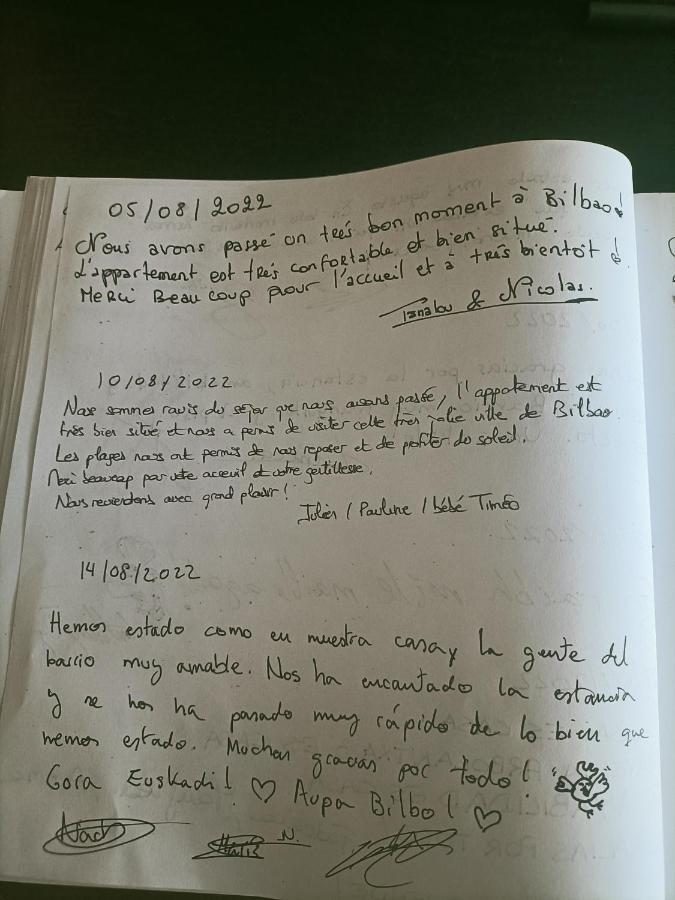 05/08/2022
Nous avons passé un très bon moment à Bilbao!
L'appartement est très confortable et bien situé.
Merci Beaucoup pour l'accueil et à très bientôt!
& Nicolas.
10/08/2022
Nous sommes ravis du séjour que nous avons passée, l'appartement est
très bien situé et nous a permis de visiter cette très jolie ville de Bilbao.
Les plages nous ont permis de nous reposer et de profiter du soleil.
Merci beaucoup pour votre acceuil et votre gentillesse.
Nous reviendons avec grand plaisir!
Julien / Pauline / bébé Timéo
14/08/2022
Hemos estado como en nuestra casa y la gente del
barrio muy amable. Nos ha encantado la estancia
y se nos ha pasado muy rápido de lo bien que
hemos estado. Muchas gracias por todo!
Gora Euskadi! ♡ Aupa Bilbo! ♡
Nach N.